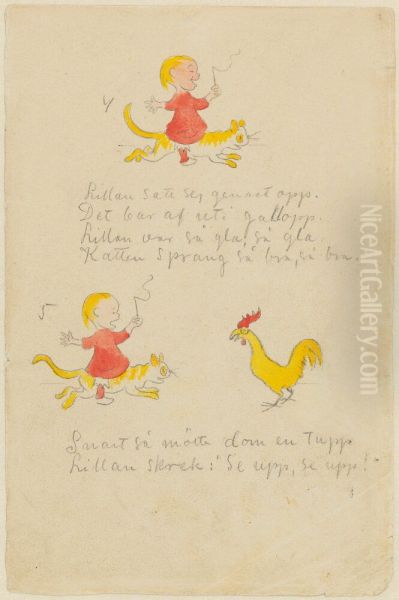 4
Lillan satt sej genast opp.
Det bar af uti gallopp.
Lillan var så gla, så gla.
Katten sprang så bra, så bra.
5
Snart så mötte dom en tupp
Lillan skrek: "Se upp, se upp!"
NiceArtGallery.com